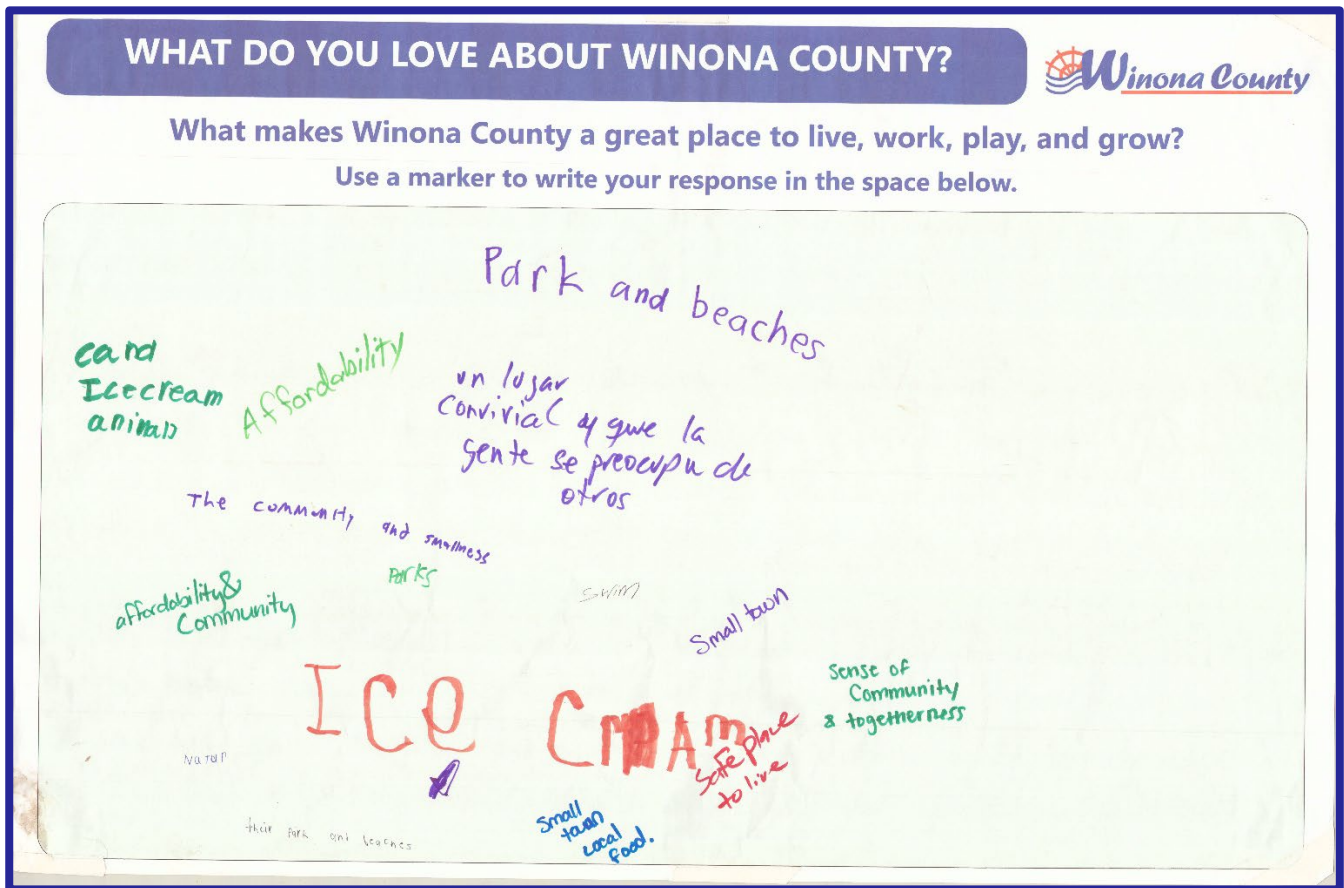 WHAT DO YOU LOVE ABOUT WINONA COUNTY?
Winona County
What makes Winona County a great place to live, work, play, and grow?
Use a marker to write your response in the space below.
Park and beaches
cand
Icecream
animals
Affordability
un lugar
convivial y que la
gente se preocupa de
otros
The community and smallness
Parks
swim
affordability &
Community
Small town
Sense of
Community
& togetherness
ICe CreAm
Safe place
to live
Natur
Small
town
Local
food.
their park and beaches